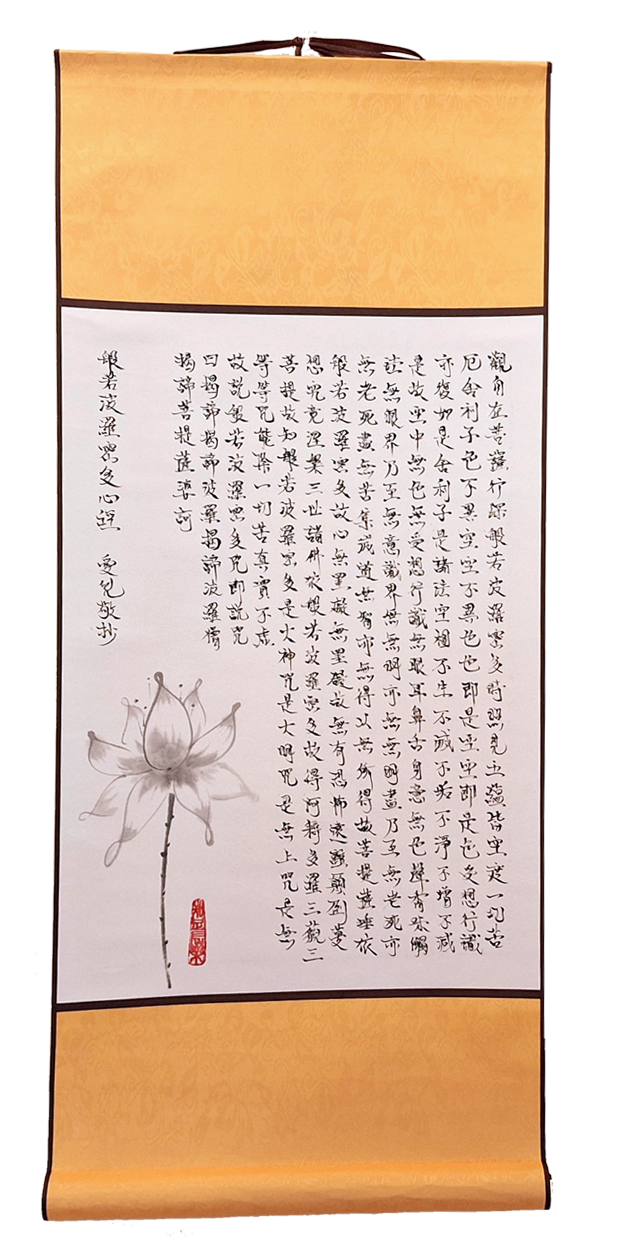 觀自在菩薩行深般若波羅蜜多時照見五蘊皆空度一切苦
厄舍利子色不異空空不異色色即是空空即是色受想行識
亦復如是舍利子是諸法空相不生不滅不垢不淨不增不減
是故空中無色無受想行識無眼耳鼻舌身意無色聲香味觸
法無眼界乃至無意識界無無明亦無無明盡乃至無老死亦
無老死盡無苦集滅道無智亦無得以無所得故菩提薩埵依
般若波羅蜜多故心無罣礙無罣礙故無有恐怖遠離顛倒夢
想究竟涅槃三世諸佛依般若波羅蜜多故得阿耨多羅三藐三
菩提故知般若波羅蜜多是大神咒是大明咒是無上咒是無
等等咒能除一切苦真實不虛
故說般若波羅蜜多咒即說咒
曰揭諦揭諦波羅揭諦波羅僧
揭諦菩提薩婆訶
般若波羅蜜多心經 敬抄